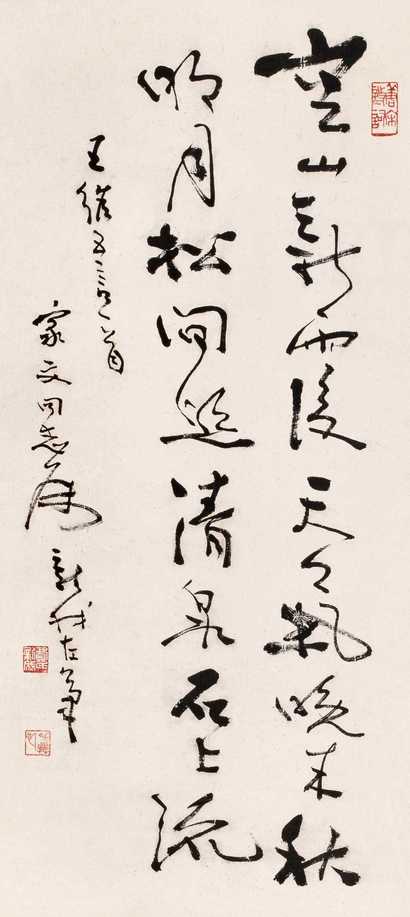 空山新雨後天氣晚来秋
明月松間照清泉石上流
王維五言一首
家文同志属 新我左筆